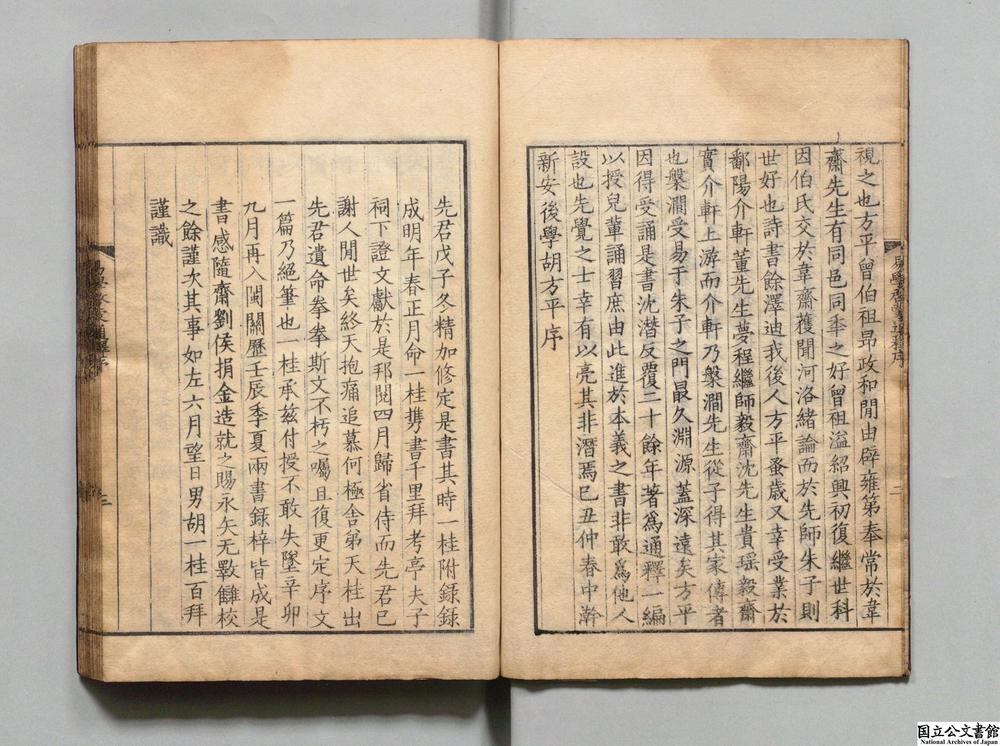 視之也方平曾伯祖昻政和閒由辟雍第奉常於韋
齋先生有同邑同年之好曾祖溢紹興初復繼世科
因伯氏交於韋齋獲聞河洛緒論而於先師朱子則
世好也詩書餘澤迪我後人方平蚤歲又幸受業於
鄱陽介軒董先生夢程繼師毅齋沈先生貴瑶毅齋
實介軒上游而介軒乃槃澗先生從子得其家傳者
也槃澗受易于朱子之門最久淵源蓋深遠矣方平
因得受誦是書沈潜反覆二十餘年著爲通釋一編
以授兒輩誦習庶由此進於本義之書非敢爲他人
設也先覺之士幸有以亮其非潛焉已丑仲春中澣
新安後學胡方平序
先君戊子冬精加修定是書其時一桂附録録
成明年春正月命一桂携書千里拜考亭夫子
祠下證文獻於是邦閱四月歸省侍而先君已
謝人閒世矣終天抱痛追慕何極舍弟天桂出
先君遺命拳拳斯文不朽之囑且復更定序文
一篇乃絕筆也一桂承兹付授不敢失墜辛卯
九月再入閩關歷壬辰季夏兩書録梓皆成是
書感隨齋劉侯捐金造就之賜永矢无斁讎校
之餘謹次其事如左六月望日男胡一桂百拜
謹識
国立公文書館
National Archives of Japan